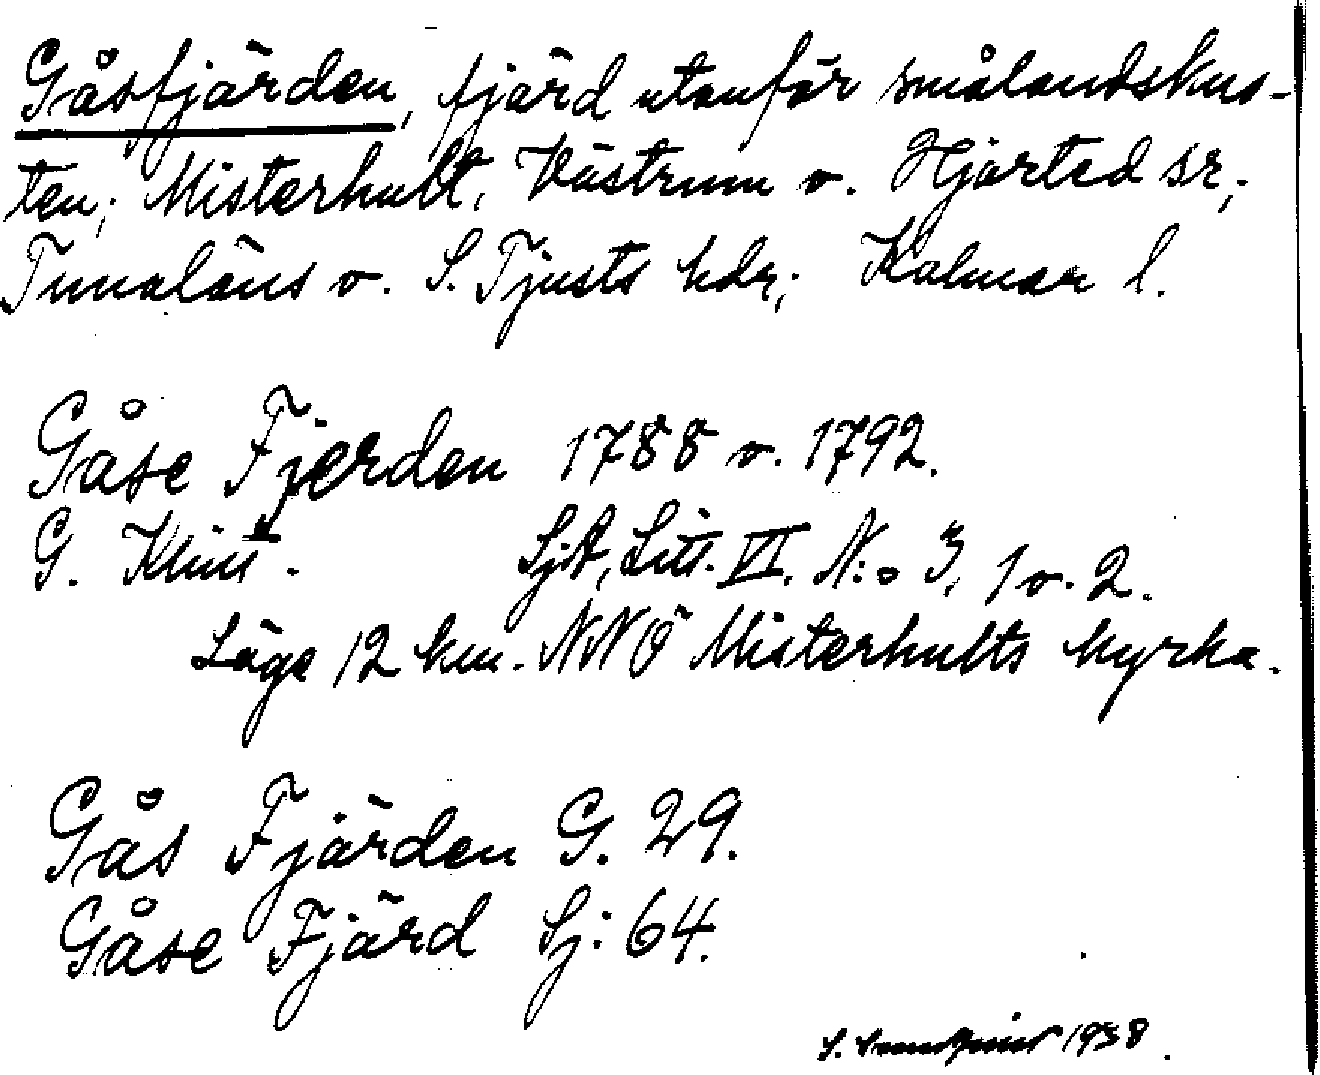 Gåsfjärden, fjärd utanför smålandskus-
ten; Misterhult, Västrum o. Hjorted sr,;
Tunaläns o. S. Tjusts hdr,; Kalmar l.
Gåse Fjerden 1788 o. 1792.
G. Klint. SjA, Litt. VI. N:o 3, 1 o. 2.
Läge 12 km. NNÖ Misterhults kyrka.
Gås Fjärden G. 29.
Gåse Fjärd Sj: 64.
S. 1938.